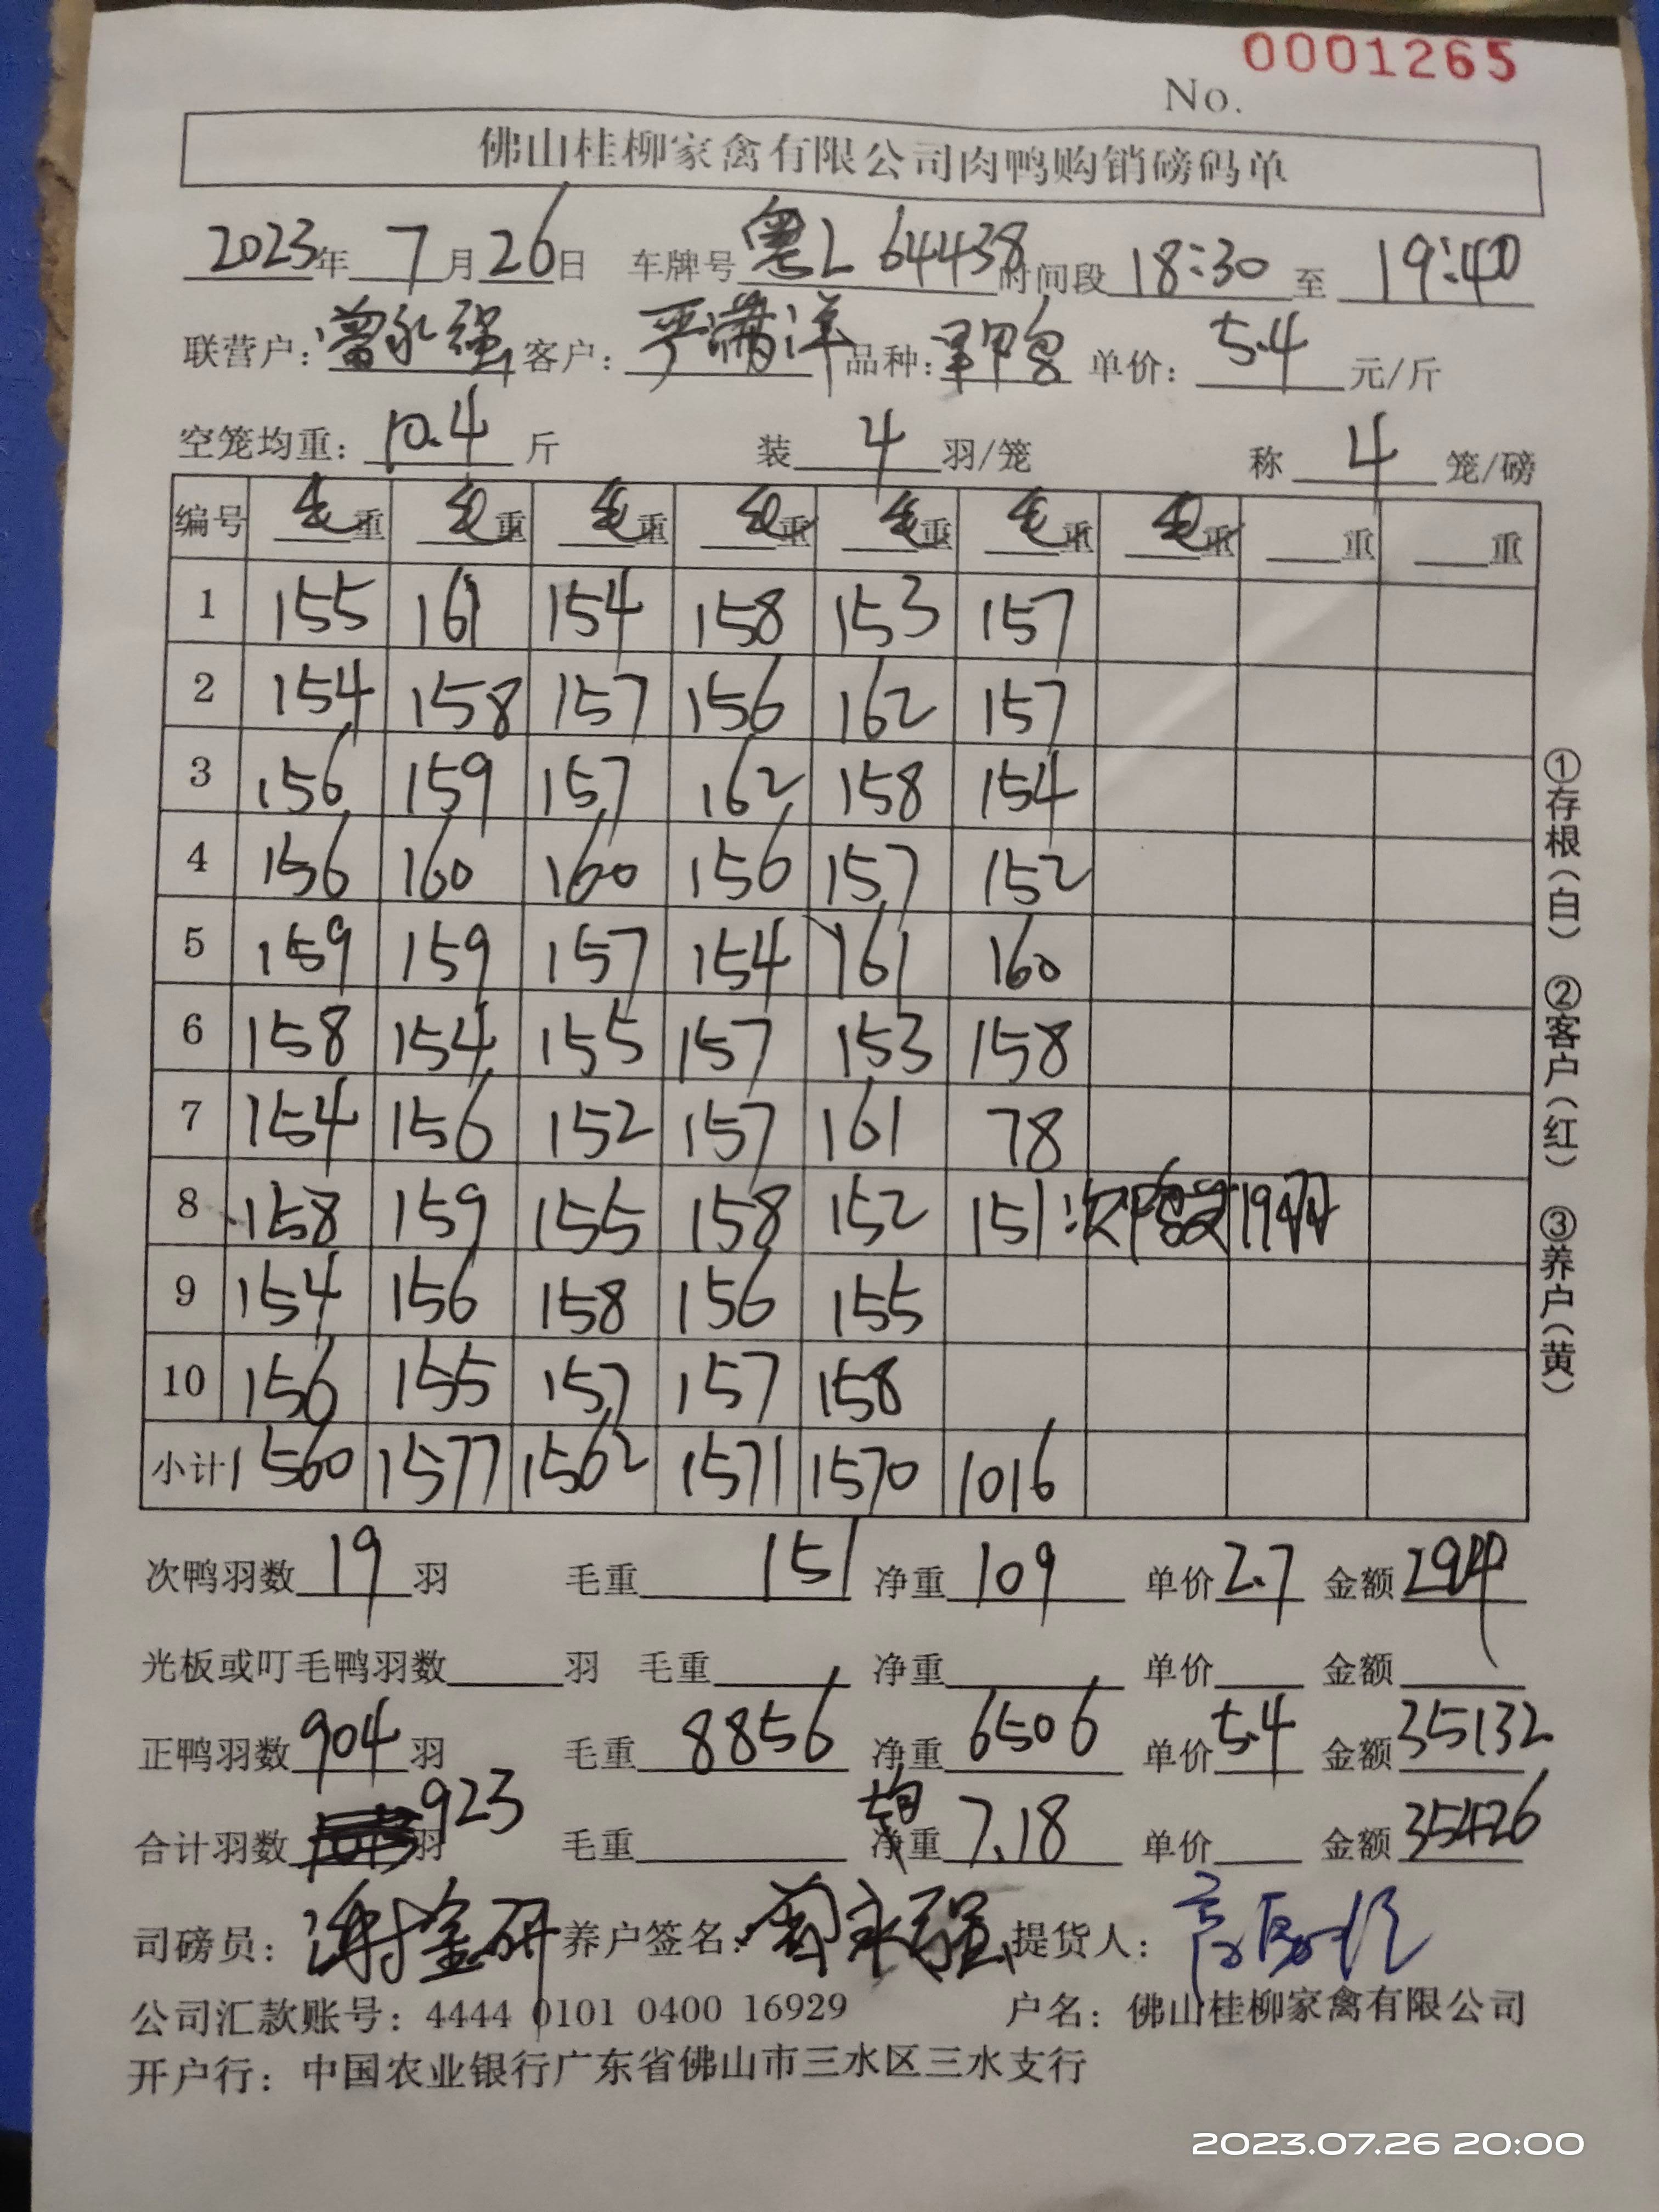 0001265
No.
佛山桂柳家禽有限公司肉鸭购销磅码单
2023年 7月26日 车牌号 粤L 64438 时间段 18:30 至 19:40
联营户：曾永强 客户：严满洋 品种： 单价：5.4 元/斤
空笼均重：10.4 斤 装 4 羽/笼 称 4 笼/磅
编号 毛重 毛重 毛重 毛重 毛重 毛重 毛重 重 重
1 155 161 154 158 153 157
2 154 158 157 156 162 157
3 156 159 157 162 158 154
4 156 160 160 156 157 152
5 159 159 157 154 161 160
6 158 154 155 157 153 158
7 154 156 152 157 161 78
8 158 159 155 158 152 151 次鸭 19羽
9 154 156 158 156 155
10 156 155 157 157 158
小计 1560 1577 1562 1571 1570 1016
次鸭羽数 19 羽 毛重 151 净重 109 单价 2.7 金额 294
光板或叮毛鸭羽数 羽 毛重 净重 单价 金额
正鸭羽数 904 羽 毛重 8856 净重 6506 单价 5.4 金额 35132
合计羽数 923 羽 毛重 均重 7.18 单价 金额 35426
司磅员：谢金研 养户签名：曾永强 提货人：
公司汇款账号：4444 0101 0400 16929 户名：佛山桂柳家禽有限公司
开户行：中国农业银行广东省佛山市三水区三水支行
①存根（白） ②客户（红） ③养户（黄）
2023.07.26 20:00